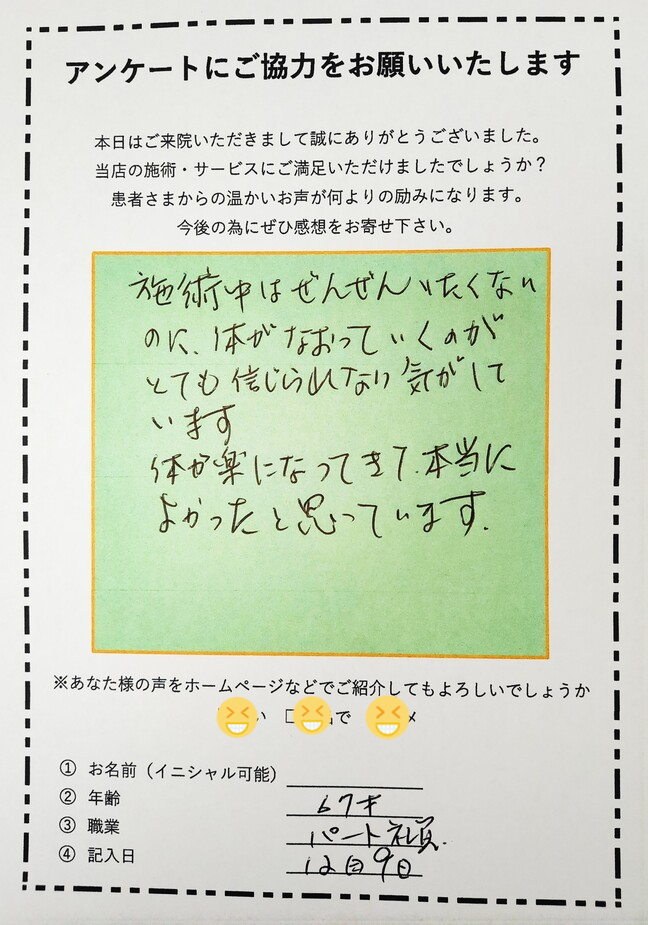 アンケートにご協力をお願いいたします
本日はご来院いただきまして誠にありがとうございました。
当店の施術・サービスにご満足いただけましたでしょうか？
患者さまからの温かいお声が何よりの励みになります。
今後の為にぜひ感想をお寄せ下さい。
施術中はぜんぜんいたくない
のに、体がなおっていくのが
とても信じられない気がして
います
体が楽になってきて、本当に
よかったと思っています.
※あなた様の声をホームページなどでご紹介してもよろしいでしょうか
い □ で メ
① お名前（イニシャル可能）
② 年齢 67才
③ 職業 パート社員.
④ 記入日 12月9日